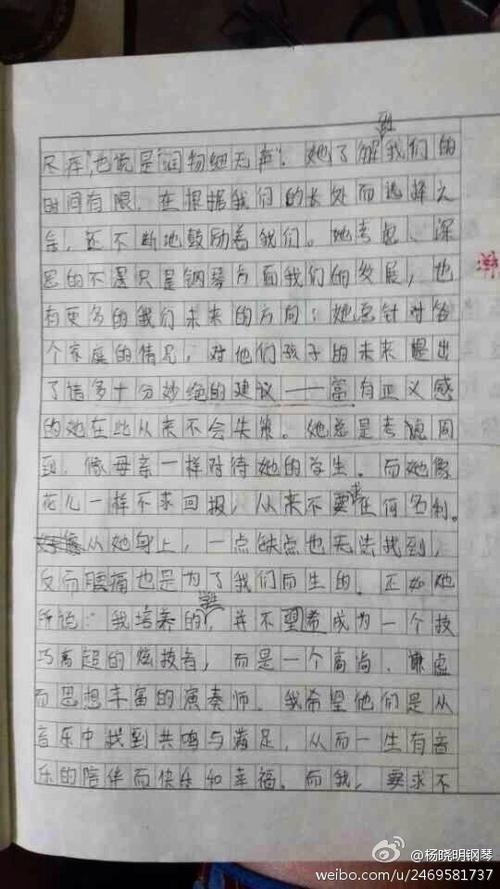 也就是"润物细无声"。她了解到我们的
时间有限,在根据我们的长处而选择之
余,还不断地鼓励着我们。她考虑、深
思的不只是钢琴方面我们的发展,也
有更多的我们未来的方向;她总针对各
个家庭的情况,对他们孩子的未来提出
了诸多十分妙绝的建议——富有正义感
的她在此从来不会失策。她总是考虑周
到,像母亲一样对待她的学生。而她像
花儿一样不求回报,从来不要求任何名利。
从她身上,一点缺点也无法找到,
反而腰痛也是为了我们而生的。正如她
所说:"我培养的学生,并不望希成为一个技
巧高超的炫技者,而是一个高尚、谦虚
而思想丰富的演奏师。我希望他们是从
音乐中找到共鸣与满足,从而一生有音
乐的陪伴而快乐和幸福。而我,要求不
@杨晓明钢琴
weibo.com/u/2469581737